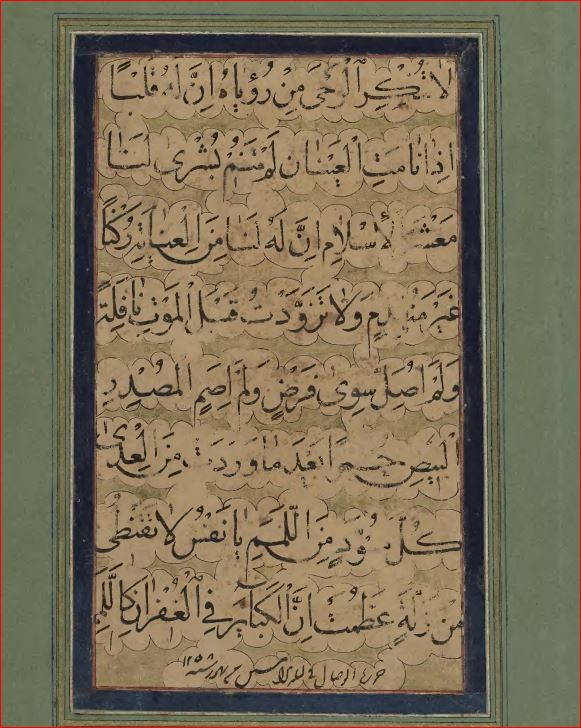 لَا تُنْكِرِ الْوَحْيَ مِنْ رُؤْيَاهُ اِنَّ لَهُ قَلْبًا
اِذَا نَامَتِ الْعَيْنَانِ لَمْ يَنَمِ بُشْرٰى لَنَا
مَعْشَرَ الْاِسْلَامِ اِنَّ لَنَا مِنَ الْعِنَايَةِ رُكْنًا
غَيْرَ مُنْهَدِمٍ وَلَا تَزَوَّدْتُ قَبْلَ الْمَوْتِ نَافِلَةً
وَلَمْ اُصَلِّ سِوٰى فَرْضٍ وَلَمْ اَصُمِ الْمُصْدِرِى
الْبِيضِ حُمْرًا بَعْدَ مَا وَرَدَتْ مِنَ الْعِدٰى
كُلَّ مُسْوَدٍّ مِنَ اللِّمَمِ يَا نَفْسُ لَا تَقْنَطِى
مِنْ زَلَّةٍ عَظُمَتْ اِنَّ الْكَبَائِرَ فِى الْغُفْرَانِ كَاللَّمَمِ